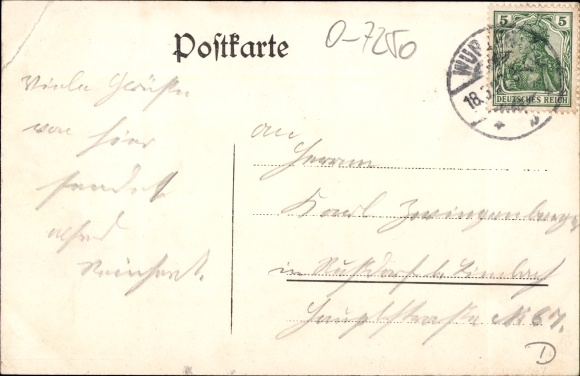 Postkarte
O-7250
5 5
DEUTSCHES REICH
WÜR
18.
Viele Grüße
von hier
sendet
Alfred
Reinhart.
an
Herrn
Karl Zwingenberger
in Rußdorf b. Limbach
Hauptstraße No 67.
D